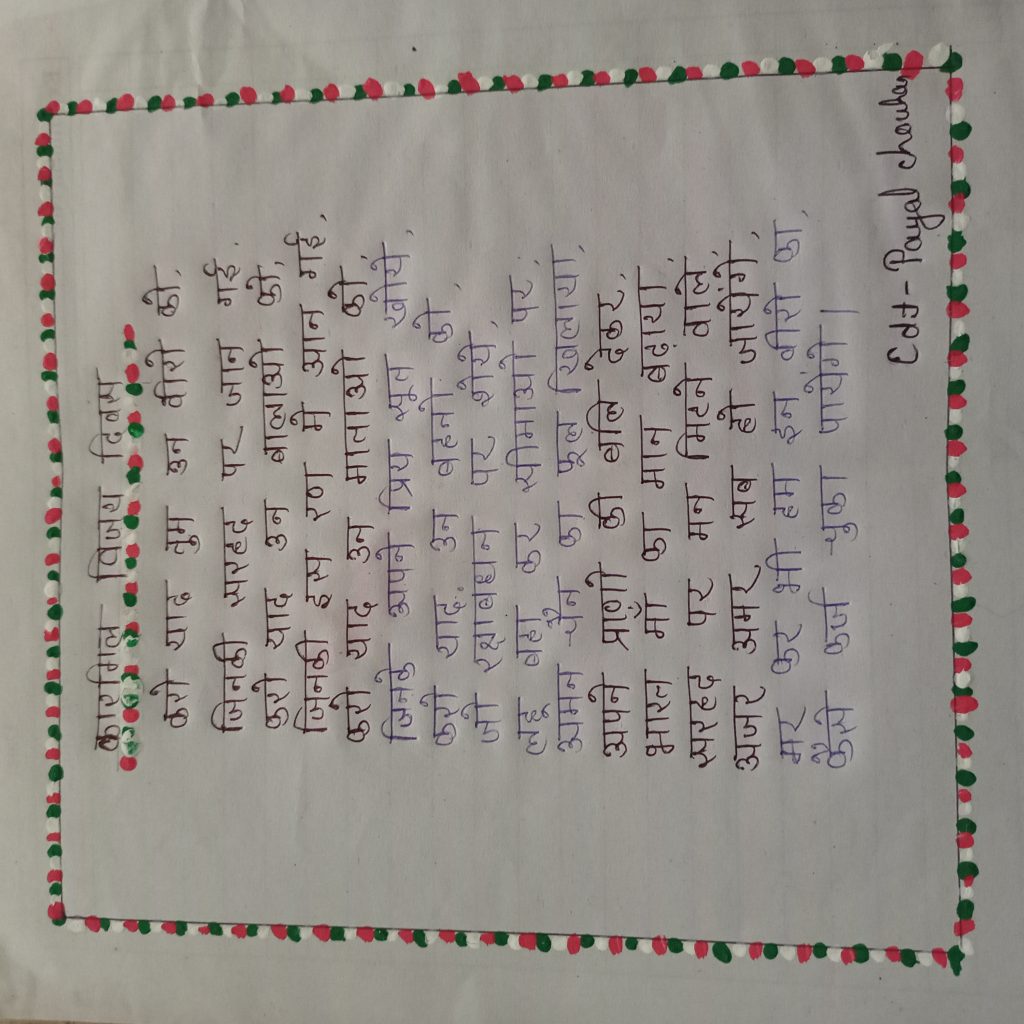 कारगिल विजय दिवस
करो याद तुम उन वीरो को,
जिनकी सरहद पर जान गई.
करो याद उन बालाओ को,
जिनकी इस रण मे आन गई,
करो याद उन माताओ को,
जिनके अपने प्रिय सूत खोये,
करो याद उन बहनो को,
जो रक्षाबधन पर रोये,
लहू बहा कर सीमाओ पर,
अमन चैन का फूल खिलाया,
अपने प्राणो की बलि देकर,
भारत माँ का मान बढ़ाया,
सरहद पर मन मिटने वाले,
अजर अमर सब हो जायेंगे,
मर कर भी हम इन वीरो का,
कैसे कर्ज चुका पायेंगे।
Cdt- Payal chouhan